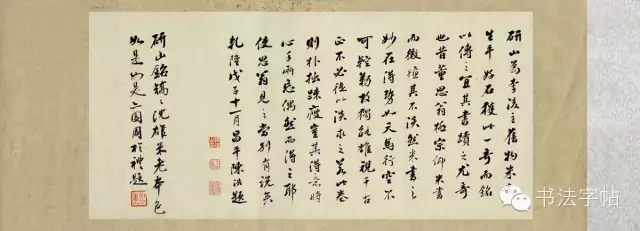 研山為李後主舊物米
生平好石獲此一奇而銘
以傳之宜其書蹟之尤奇
也昔董思翁極宗仰米書
而微憾其不淡然米書之
妙在得勢如天馬行空不
可控勒故獨能雄視千古
正不必徒以淡求之若此卷
則朴拙疎瘦豈其得意時
心手兩忘偶然而得之耶
使思翁見之當別有說矣
乾隆戊子十一月昌平陳浩題
研山銘沈雄米老本色
如是如是周於禮題
书法字帖